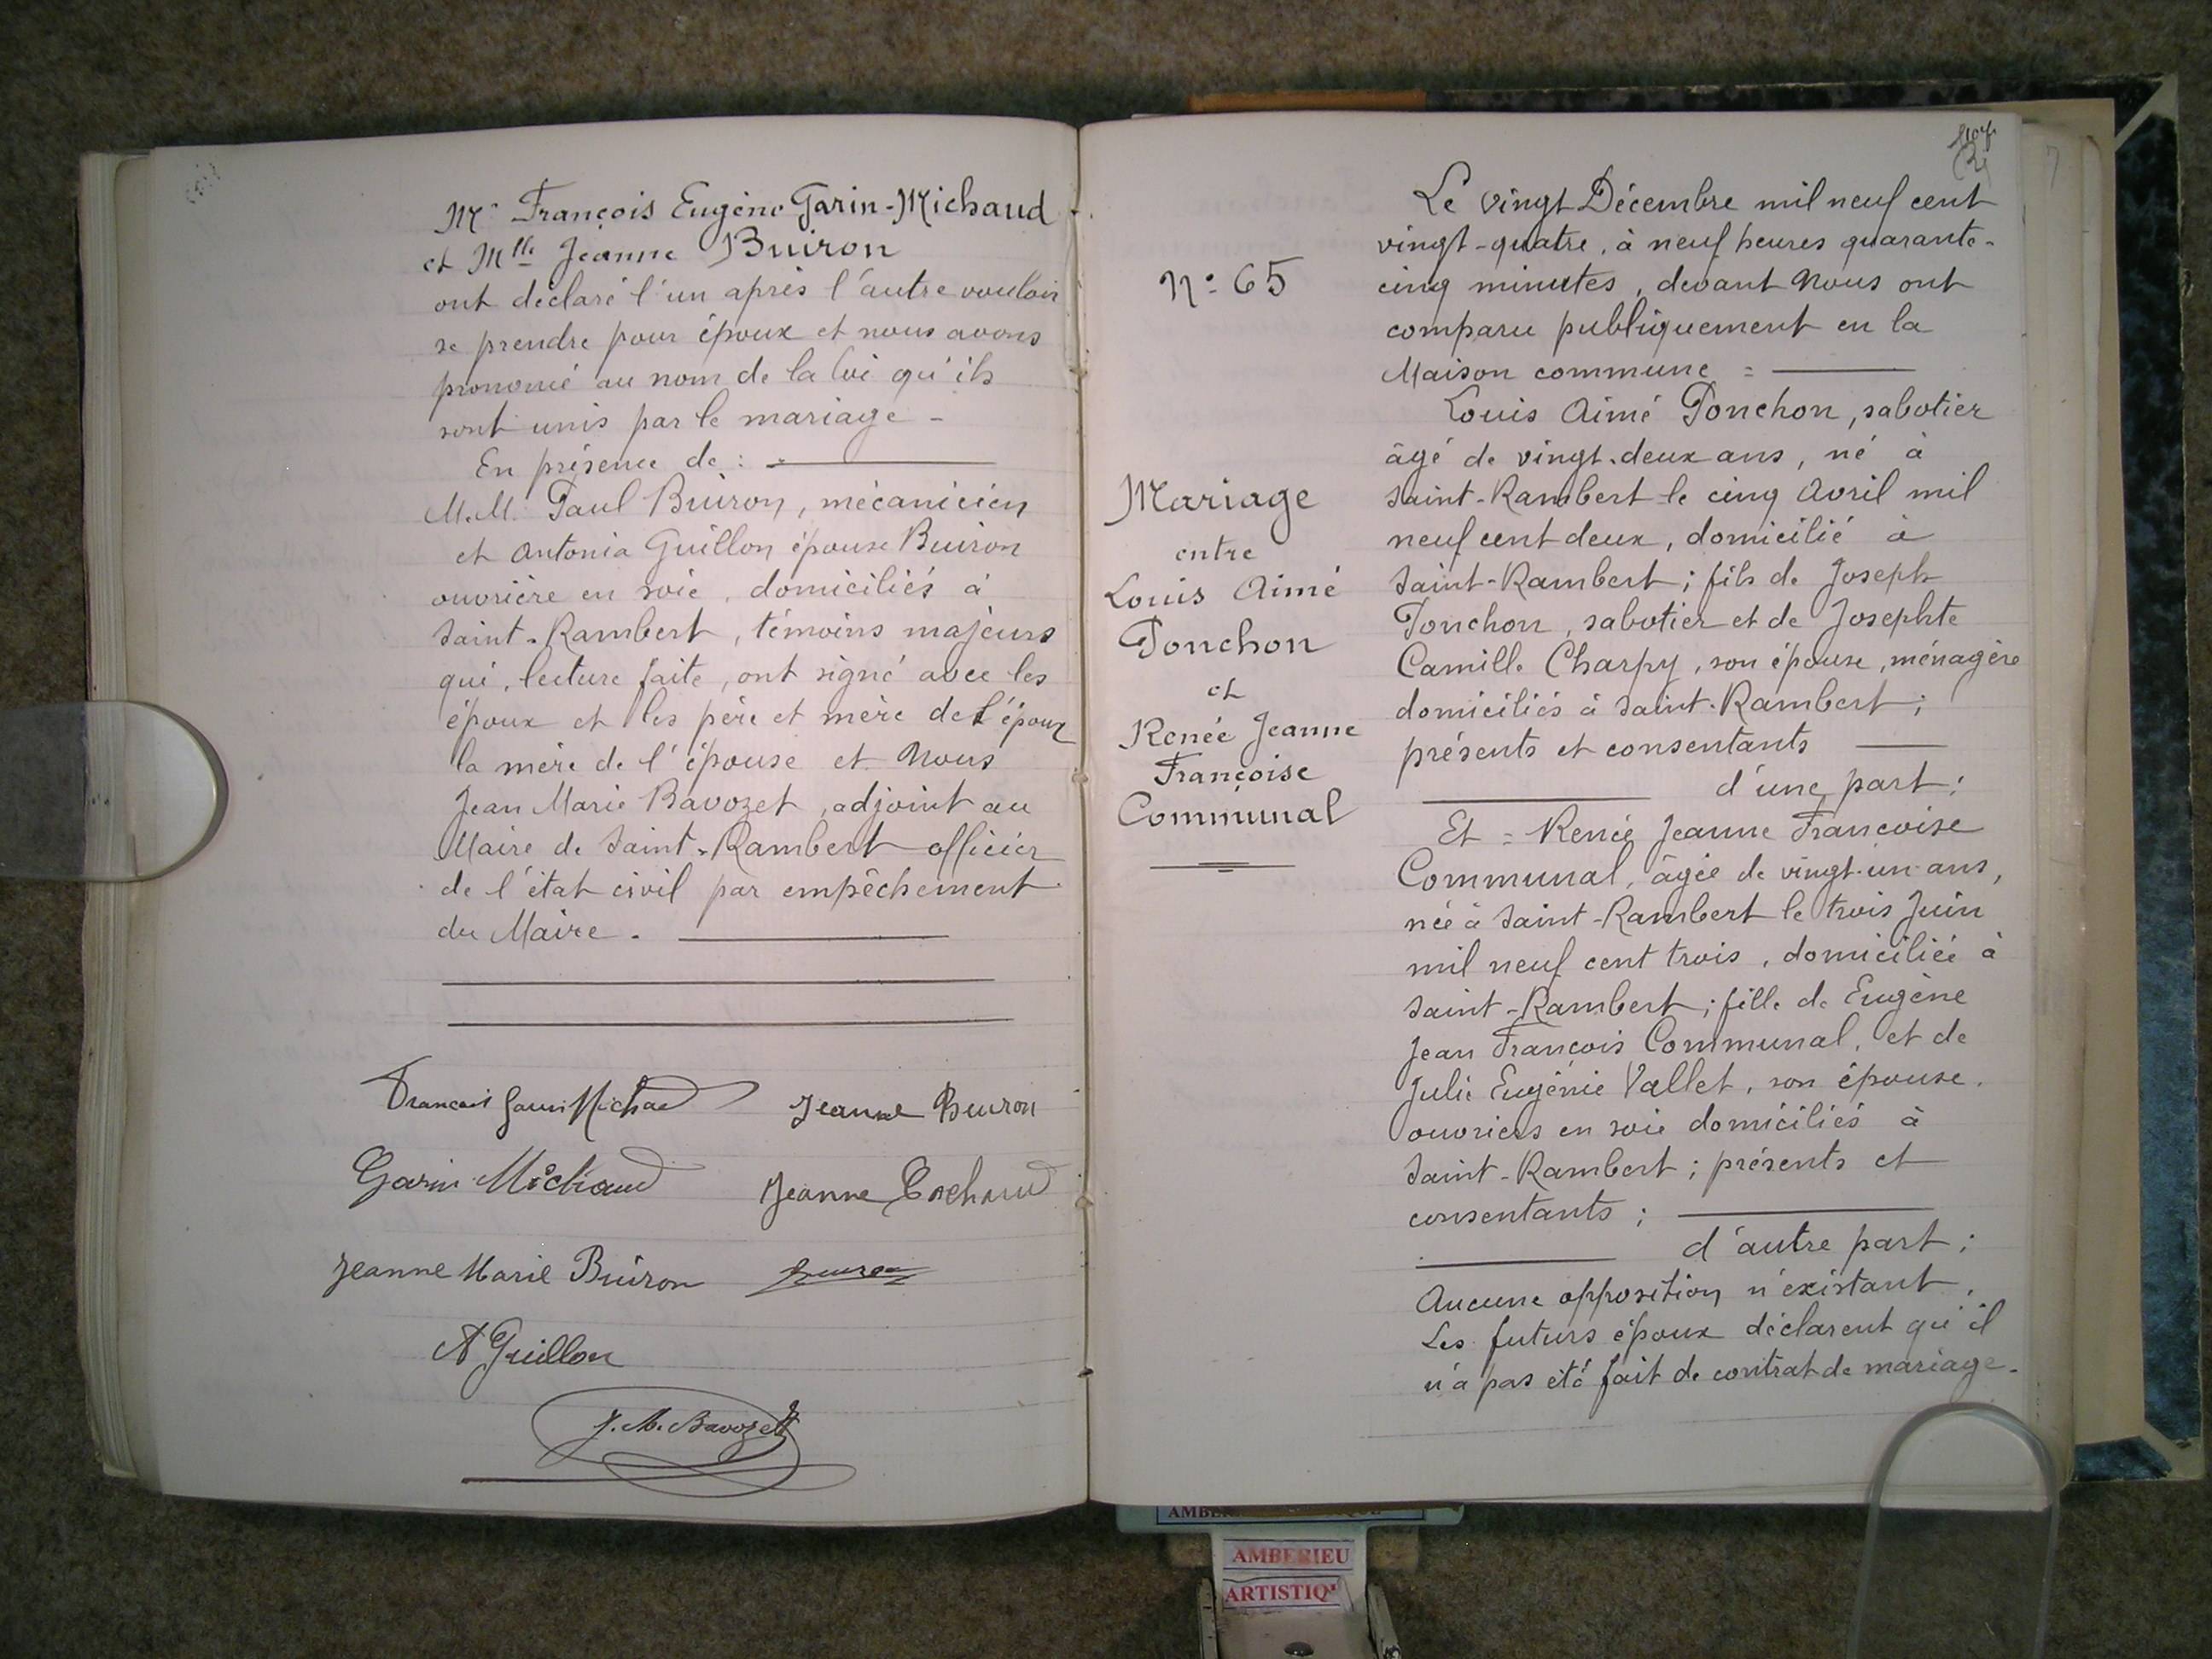 Mr François Eugène Garin-Michaud
et Mlle Jeanne Buiron
ont déclaré l'un après l'autre vouloir
se prendre pour époux et nous avons
prononcé au nom de la loi qu'ils
sont unis par le mariage -
En présence de :
M.M. Paul Buiron, mécanicien
et Antonia Guillon épouse Buiron
ouvrière en soie, domiciliés à
Saint-Rambert, témoins majeurs
qui, lecture faite, ont signé avec les
époux et les père et mère de l'époux
la mère de l'épouse et Nous
Jean Marie Bavozet, adjoint au
Maire de Saint-Rambert officier
de l'état civil par empêchement
du Maire.
François Garin Michaud Jeanne Buiron
Garin Michaud Jeanne Cochand
Jeanne Marie Buiron Buiron
A Guillon
J. M. Bavozet
N° 65
Mariage
entre
Louis Aimé
Ponchon
et
Renée Jeanne
Françoise
Communal
Le vingt Décembre mil neuf cent
vingt-quatre, à neuf heures quarante-
cinq minutes, devant Nous ont
comparu publiquement en la
Maison commune =
Louis Aimé Ponchon, sabotier
âgé de vingt-deux ans, né à
Saint-Rambert le cinq Avril mil
neuf cent deux, domicilié à
Saint-Rambert ; fils de Joseph
Ponchon, sabotier et de Josephte
Camille Charpy, son épouse, ménagère
domiciliés à Saint-Rambert ;
présents et consentants
d'une part ;
Et = Renée Jeanne Françoise
Communal, âgée de vingt-un ans,
née à Saint-Rambert le trois Juin
mil neuf cent trois, domiciliée à
Saint-Rambert ; fille de Eugène
Jean François Communal, et de
Julie Eugénie Vallet, son épouse.
ouvriers en soie domiciliés à
Saint-Rambert ; présents et
consentants ;
d'autre part ;
Aucune opposition n'existant,
Les futurs époux déclarent qu'il
n'a pas été fait de contrat de mariage.
AMBERIEU
ARTISTIQ'